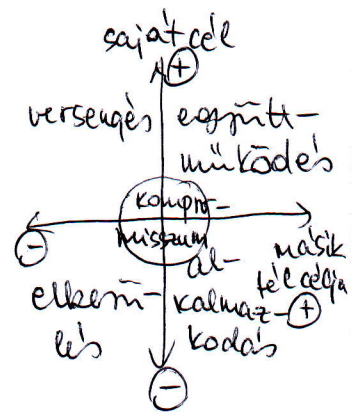 saját cél
+
versengés
együtt-
működés
kompro-
misszum
-
másik
fél célja
+
elkerü-
lés
al-
kalmaz-
kodás
-